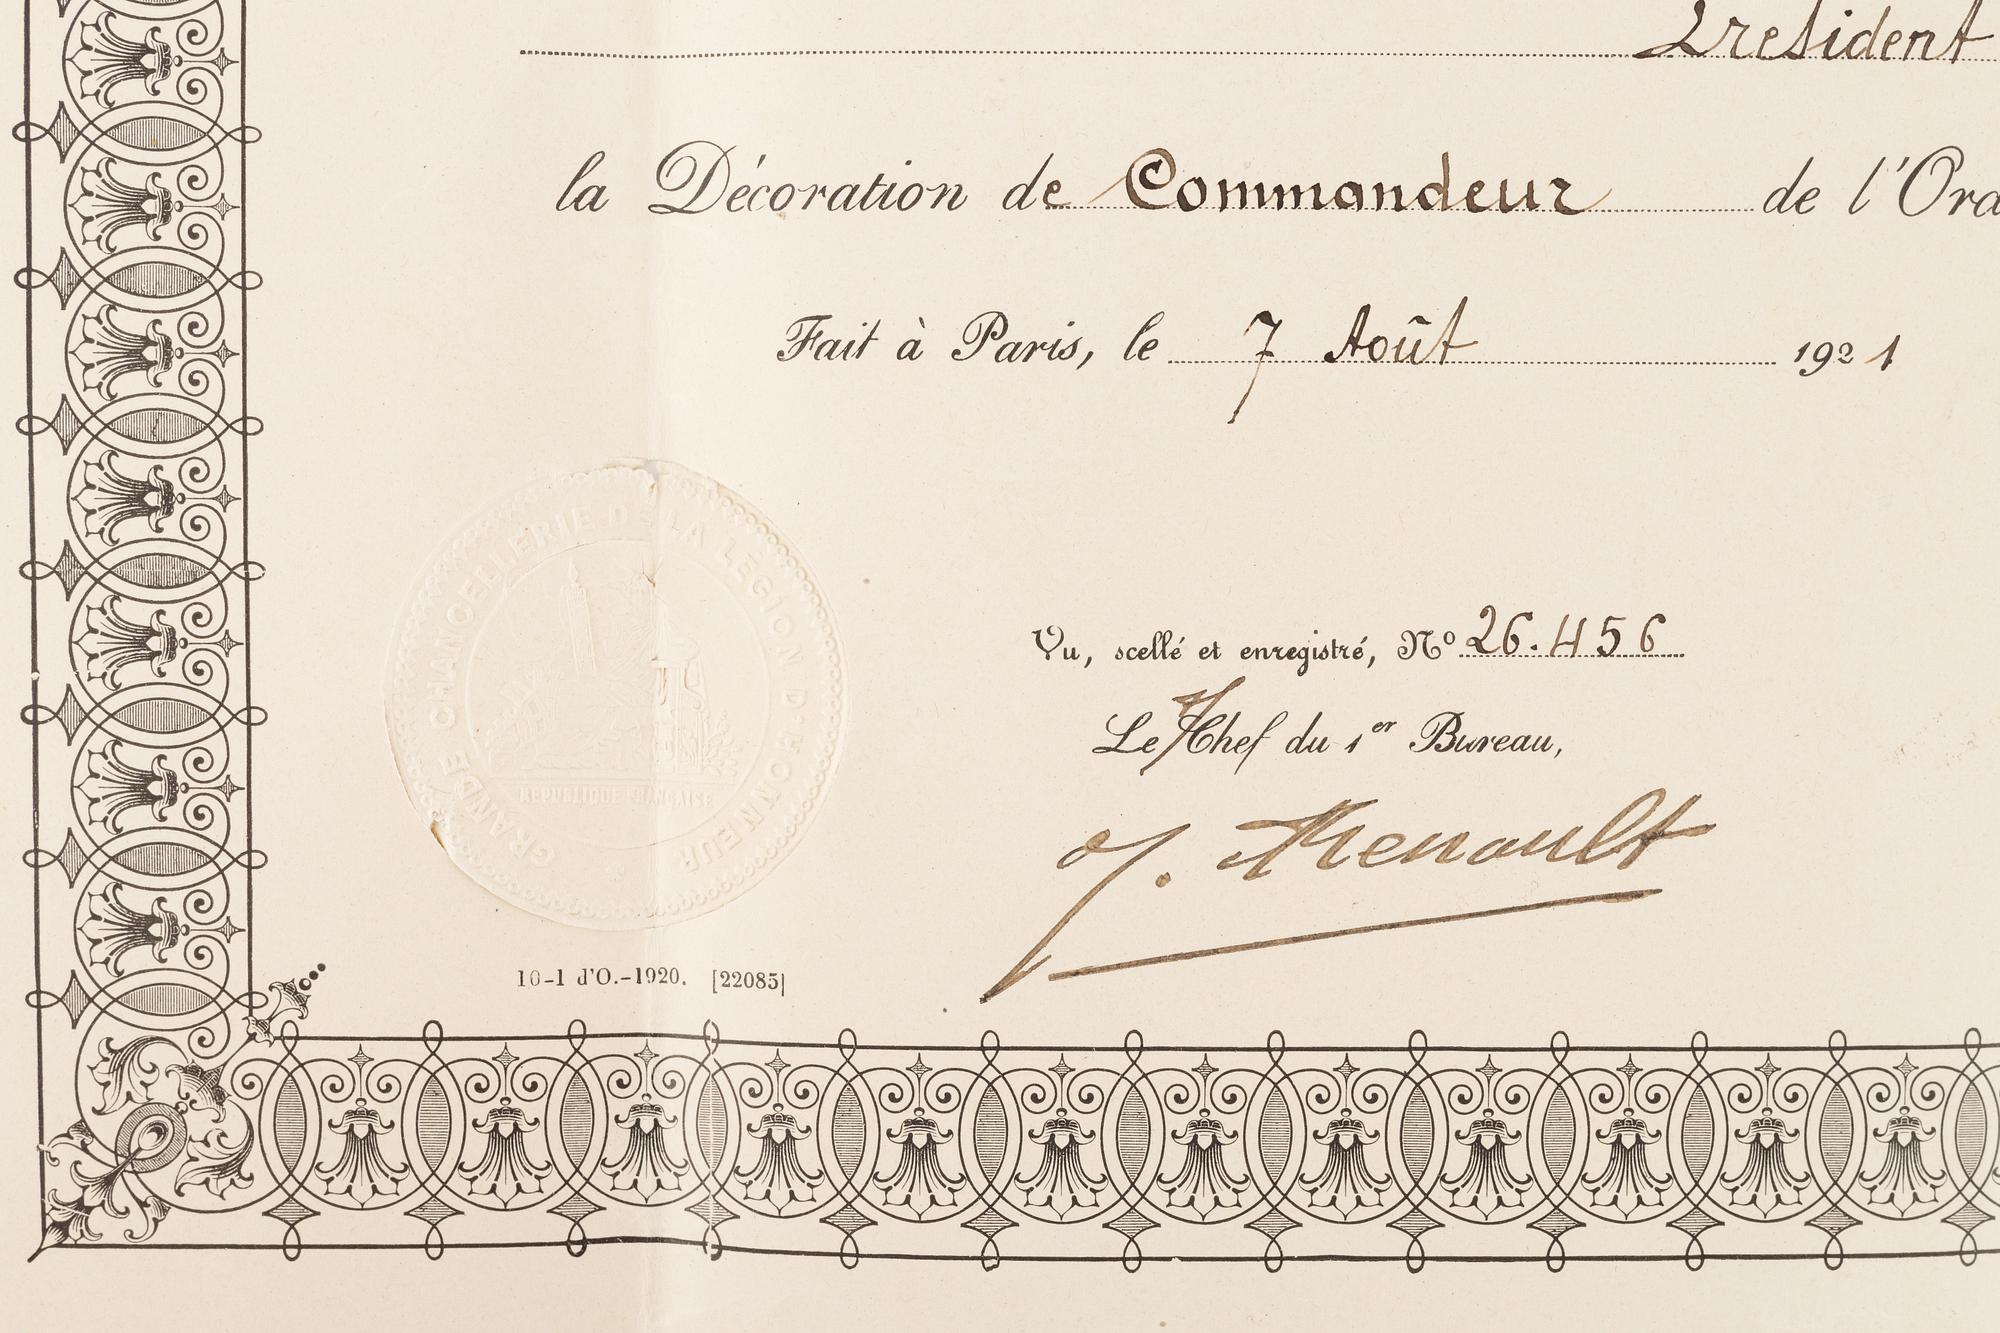 President
la Décoration de Commandeur de l'Ord
Fait à Paris, le 7 Août 1921
GRANDE CHANCELLERIE DE LA LÉGION D'HONNEUR
REPUBLIQUE FRANÇAISE
Vu, scellé et enregistré, Nº 26.456
Le Chef du 1er Bureau,
J. Renault
10-1 d'O.-1920. [22085]